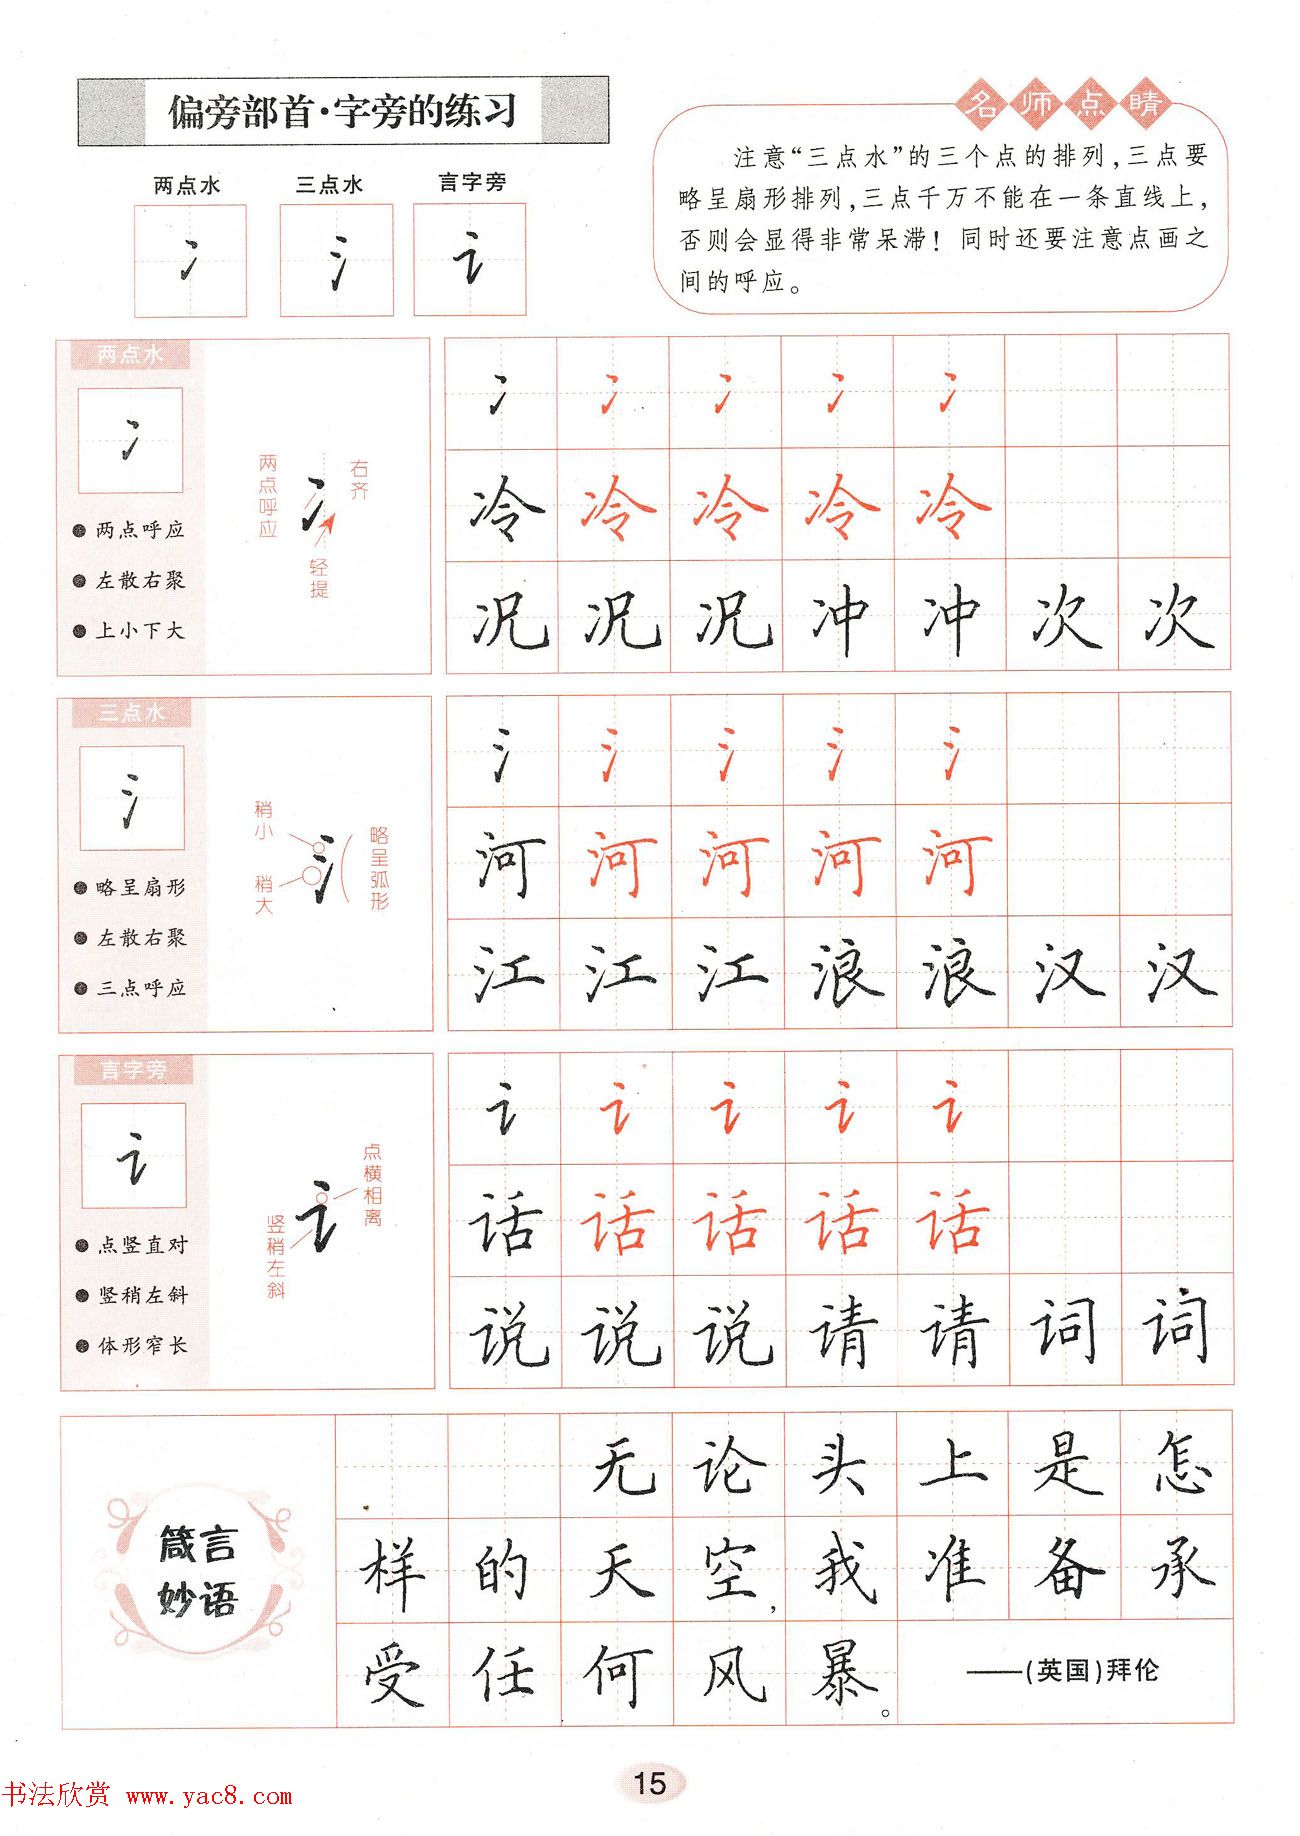 偏旁部首·字旁的练习
名师点睛
两点水 三点水 言字旁
冫 氵 讠
注意“三点水”的三个点的排列，三点要
略呈扇形排列，三点千万不能在一条直线上，
否则会显得非常呆滞！同时还要注意点画之
间的呼应。
两点水
冫
两点呼应
左散右聚
上小下大
两点呼应
右齐
轻提
冫 冫 冫 冫 冫
冷 冷 冷 冷 冷
况 况 况 冲 冲 次 次
三点水
氵
略呈扇形
左散右聚
三点呼应
稍小
稍大
略呈弧形
氵 氵 氵 氵 氵
河 河 河 河 河
江 江 江 浪 浪 汉 汉
言字旁
讠
点竖直对
竖稍左斜
体形窄长
点横相离
竖稍左斜
讠 讠 讠 讠 讠
话 话 话 话 话
说 说 说 请 请 词 词
箴言
妙语
无论头上是怎
样的天空，我准备承
受任何风暴。
——(英国)拜伦
15
书法欣赏 www.yac8.com